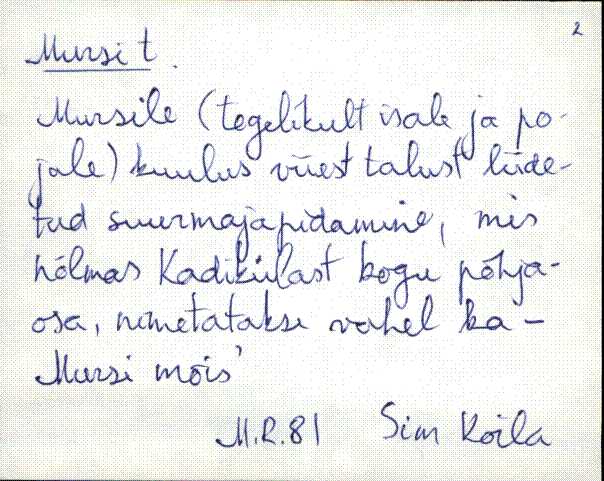 2
Mursi t.
Mursile (tegelikult isale ja po-
jale) kuulus viiest talust liide-
tud suurmajapidamine, mis
hõlmas Kadikülast kogu põhja-
osa, nimetatakse vahel ka -
Mursi mõis'
M.R. 81 Sim Koila